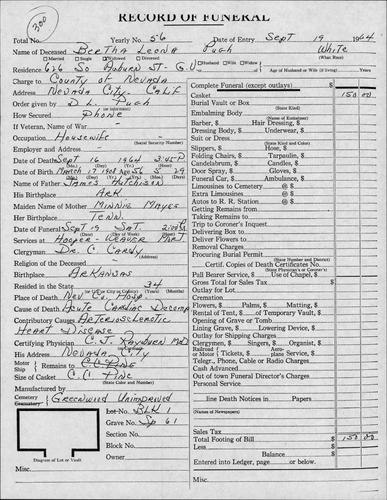 RECORD OF FUNERAL
300
Total No. Yearly No. 56 Date of Entry Sept 19 1964
Name of Deceased Bertha Leona Pugh White
Married Single Widowed Divorced Husband Wife Widow (What Race)
Residence 626 So Auburn St. G.V.
Age of Husband or Wife (if living) Years
Charge to County of Nevada
Address Nevada City Calif
Order given by D. L. Pugh
(or informant)
How Secured Phone
If Veteran, Name of War
Occupation Housewife
(Social Security Number)
Employer and Address
Date of Death Sept 16 1964 3:45 P M.
Date of Birth March 17 1908 Age 56 5 29
Name of Father James Hutchison
His Birthplace Ark
Maiden Name of Mother Minnie Mayes
Her Birthplace Tenn.
Date of Funeral Sept 19 Sat. 2:00 P M
Services at Hooper-Weaver Mort
Clergyman Dr. C Cardy
Religion of the Deceased
Birthplace Arkansas
Resided in the State 34
(or U.S. or City or County) (Years) (Months)
Place of Death Nev Co. Hosp.
Cause of Death Acute Cardiac Decomp
Contributory Causes Arteriosclerotic
Heart Disease
Certifying Physician C. J. Rayburn MD
His Address Nevada City
Motor
Ship Remains to
Size of Casket C. C. Pine
(State Color and Number)
Manufactured by
Cemetery
Crematory Greenwood Unimproved
Lot No. Blk 1
Grave No. Sp 61
Section No.
Block No.
Owner
Diagram of Lot or Vault
Misc.
Complete Funeral (except outlays) $
Casket 150 00
Burial Vault or Box
(State Kind)
Embalming Body
(Name of Embalmer)
Barber, $ Hair Dressing, $
Dressing Body, $ Underwear, $
Suit or Dress
(State Kind and Color)
Slippers, $ Hose, $
Folding Chairs, $ Tarpaulin, $
Candelabrum, $ Candles, $
Door Spray, $ Gloves, $
Funeral Car, $ Ambulance, $
Limousines to Cemetery @ $
Extra Limousines @ $
Autos to R. R. Station @ $
Getting Remains from
Taking Remains to
Trip to Coroner's Office
Delivering Box to
Deliver Flowers to
Removal Charges
Procuring Burial Permit
(State Number and District)
Certi. Copies of Death Certificates No.
(State Physician's or Coroner's)
Pall Bearer Service, $ Use of Chapel, $
Gross Total for Sales Tax $
Outlay for Lot
Cremation
Flowers, $ Palms, $ Matting, $
Rental of Tent, $ of Temporary Vault, $
Opening of Grave or Tomb
Lining Grave, $ Lowering Device, $
Outlay for Shipping Charges
Clergyman, $ Singers, $ Organist, $
Railroad
or Motor Tickets, $ Aeroplane Service, $
Telegr., Phone, Cable or Radio Charges
Cash Advanced
Out of town Funeral Director's Charges
Personal Service
line Death Notices in Papers
(Names of Newspapers)
Sales Tax
Total Footing of Bill $ 150 00
Less
Balance $
Entered into Ledger, page or below.
Misc.